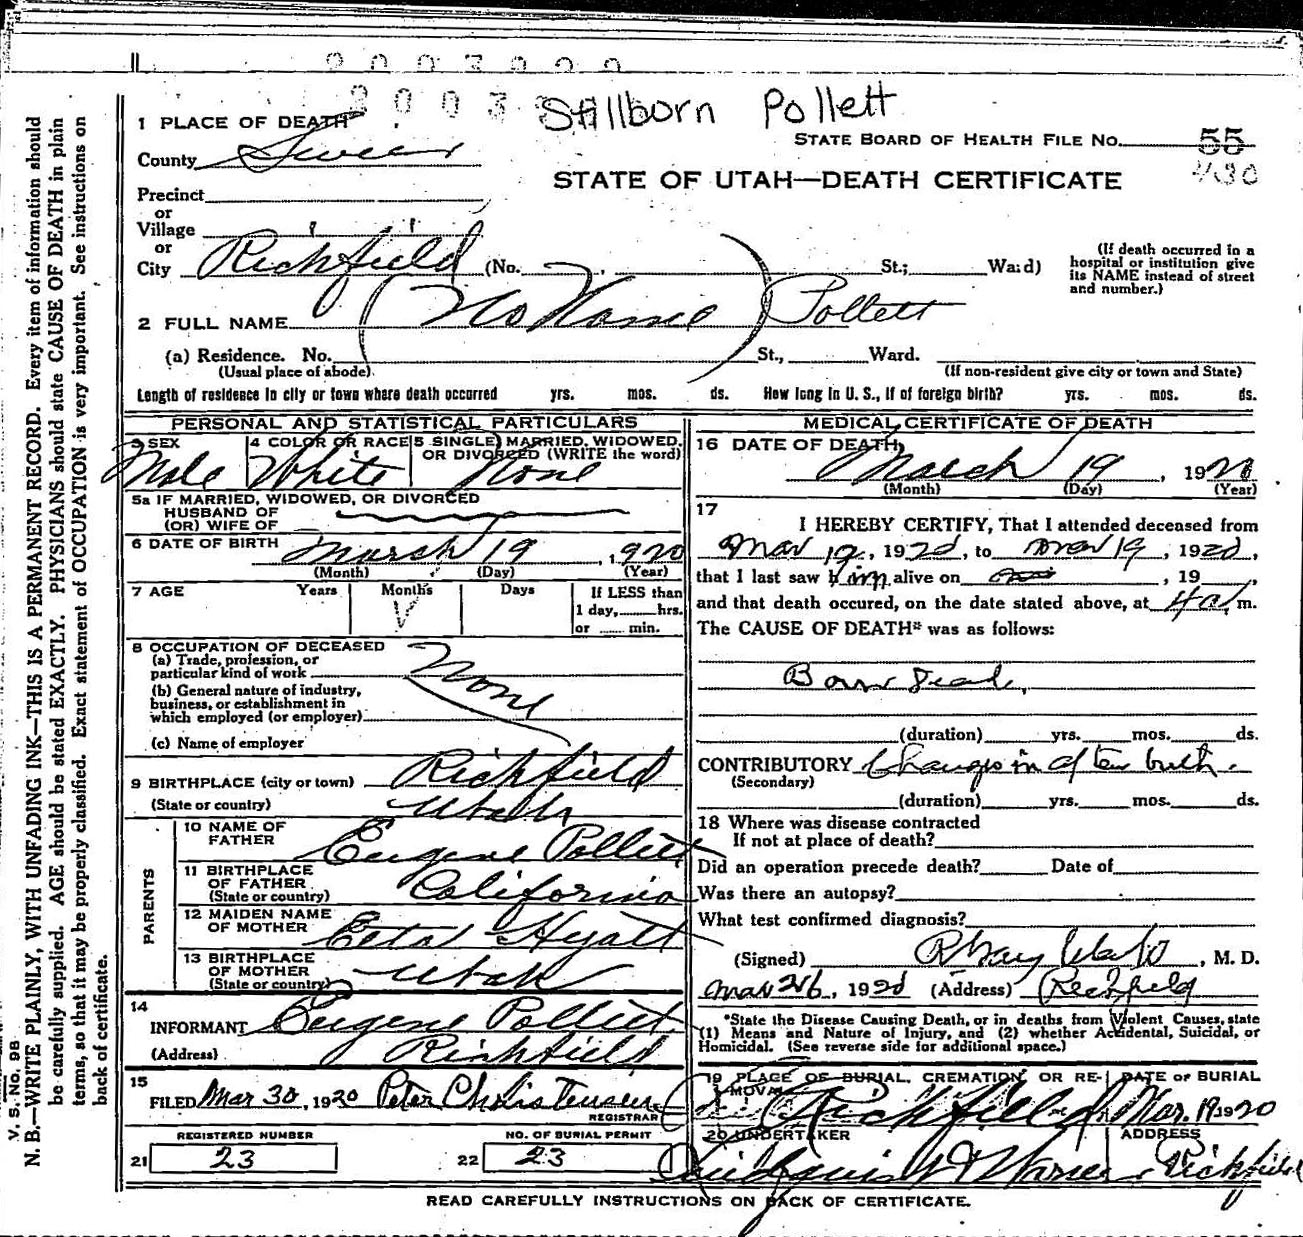 Stillborn Pollett
1 PLACE OF DEATH
STATE BOARD OF HEALTH FILE No. 55
430
County Sevier
STATE OF UTAH—DEATH CERTIFICATE
Precinct
or
Village
or
City Richfield (No. St.; Ward)
(If death occurred in a hospital or institution give its NAME instead of street and number.)
2 FULL NAME (No Name) Pollett
(a) Residence. No. St., Ward.
(Usual place of abode) (If non-resident give city or town and State)
Length of residence in city or town where death occurred yrs. mos. ds. How long in U. S., if of foreign birth? yrs. mos. ds.
PERSONAL AND STATISTICAL PARTICULARS
3 SEX Male
4 COLOR OR RACE White
5 SINGLE, MARRIED, WIDOWED, OR DIVORCED (WRITE the word) None
5a IF MARRIED, WIDOWED, OR DIVORCED
HUSBAND OF
(OR) WIFE OF
6 DATE OF BIRTH March 19, 1920
(Month) (Day) (Year)
7 AGE Years Months Days If LESS than
1 day, hrs.
or min.
8 OCCUPATION OF DECEASED
(a) Trade, profession, or
particular kind of work None
(b) General nature of industry,
business, or establishment in
which employed (or employer)
(c) Name of employer
9 BIRTHPLACE (city or town) Richfield
(State or country) Utah
PARENTS
10 NAME OF FATHER Eugene Pollett
11 BIRTHPLACE OF FATHER (State or country) California
12 MAIDEN NAME OF MOTHER Etta Hyatt
13 BIRTHPLACE OF MOTHER (State or country) Utah
14
INFORMANT Eugene Pollett
(Address) Richfield
15
FILED Mar 30, 1920 Peter Christensen
REGISTRAR
REGISTERED NUMBER NO. OF BURIAL PERMIT
21 23 22 23
MEDICAL CERTIFICATE OF DEATH
16 DATE OF DEATH March 19, 1920
(Month) (Day) (Year)
17
I HEREBY CERTIFY, That I attended deceased from
Mar 19, 1920, to Mar 19, 1920,
that I last saw him alive on , 19 ,
and that death occured, on the date stated above, at 4 a. m.
The CAUSE OF DEATH* was as follows:
Born Dead,
(duration) yrs. mos. ds.
CONTRIBUTORY Changes in after birth.
(Secondary)
(duration) yrs. mos. ds.
18 Where was disease contracted
If not at place of death?
Did an operation precede death? Date of
Was there an autopsy?
What test confirmed diagnosis?
(Signed) , M. D.
Mar 26, 1920 (Address) Richfield
*State the Disease Causing Death, or in deaths from Violent Causes, state
(1) Means and Nature of Injury, and (2) whether Accidental, Suicidal, or
Homicidal. (See reverse side for additional space.)
19 PLACE OF BURIAL, CREMATION OR REMOVAL DATE OF BURIAL
Richfield Mar. 19 1920
20 UNDERTAKER ADDRESS
Richfield
READ CAREFULLY INSTRUCTIONS ON BACK OF CERTIFICATE.
V. S. No. 98
N. B.—WRITE PLAINLY, WITH UNFADING INK—THIS IS A PERMANENT RECORD. Every item of information should
be carefully supplied. AGE should be stated EXACTLY. PHYSICIANS should state CAUSE OF DEATH in plain
terms, so that it may be properly classified. Exact statement of OCCUPATION is very important. See instructions on
back of certificate.